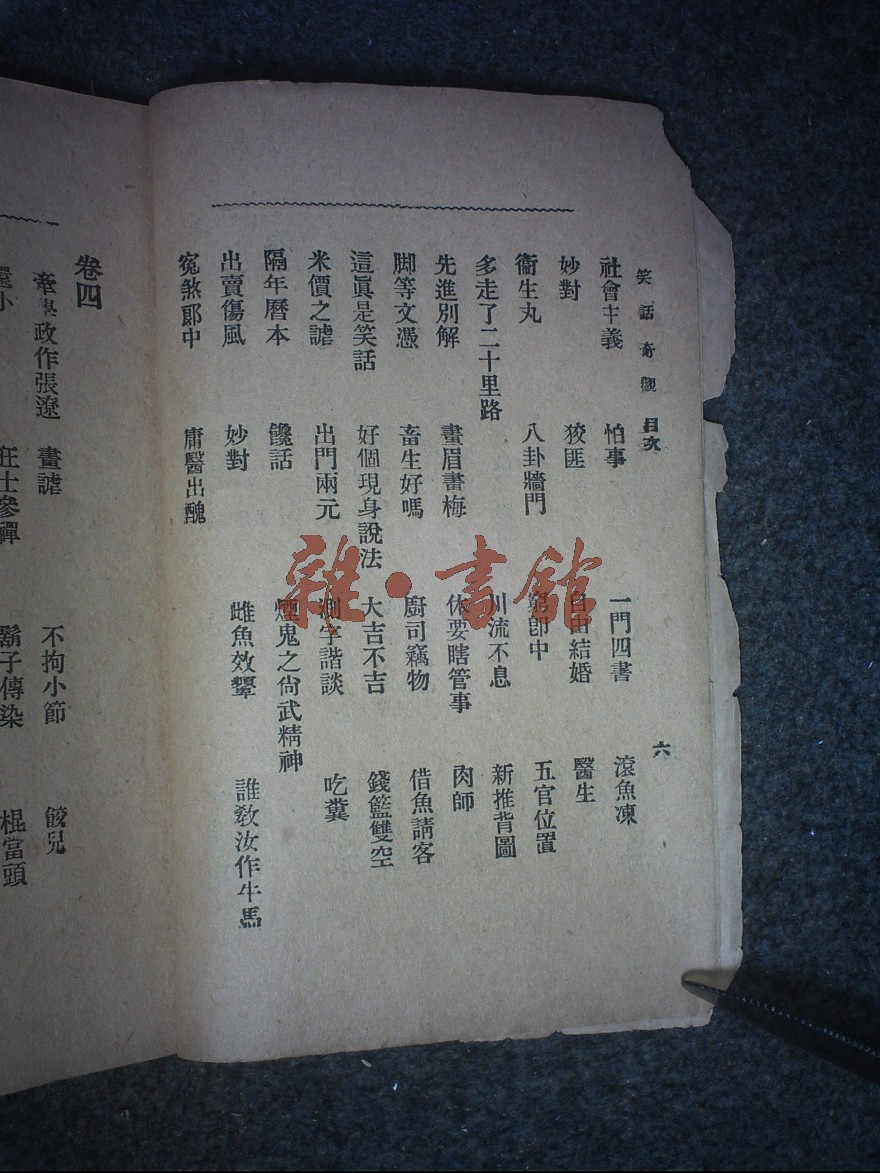 笑話奇觀 目次 六
社會主義 怕事 一門四書 滾魚凍
妙對 狡匪 自由結婚 醫生
衞生丸 八卦牆門 窮郎中 五官位置
多走了二十里路 川流不息 新推背圖
先進別解 畫眉畫梅 休要瞎管事 肉師
脚等文憑 畜生好嗎 廚司竊物 借魚請客
這眞是笑話 好個現身說法 大吉不吉 錢籃雙空
米價之謔 出門兩元 測字諧談 吃糞
隔年曆本 饞話 煙鬼之尙武精神
出賣傷風 妙對 雌魚效顰 誰敎汝作牛馬
寃煞郞中 庸醫出醜
卷四
學政作張遼 畫謔 不拘小節 餃兒
小 狂士參禪 鬍子傳染 棍當頭
雜·書館